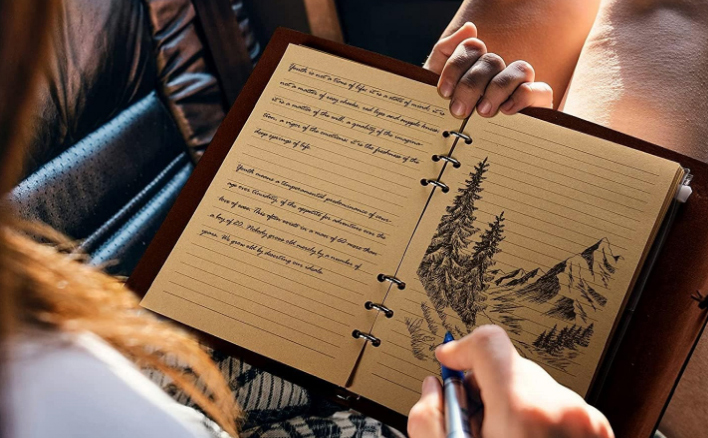 Youth is not a time of life; it is a state of mind; it is
not a matter of rosy cheeks, red lips and supple knees;
it is a matter of the will, a quality of the imagina-
tion, a vigor of the emotions; it is the freshness of the
deep springs of life.
Youth means a temperamental predominance of cour-
age over timidity, of the appetite for adventure over the
love of ease. This often exists in a man of 60 more than
a boy of 20. Nobody grows old merely by a number of
years. We grow old by deserting our ideals.